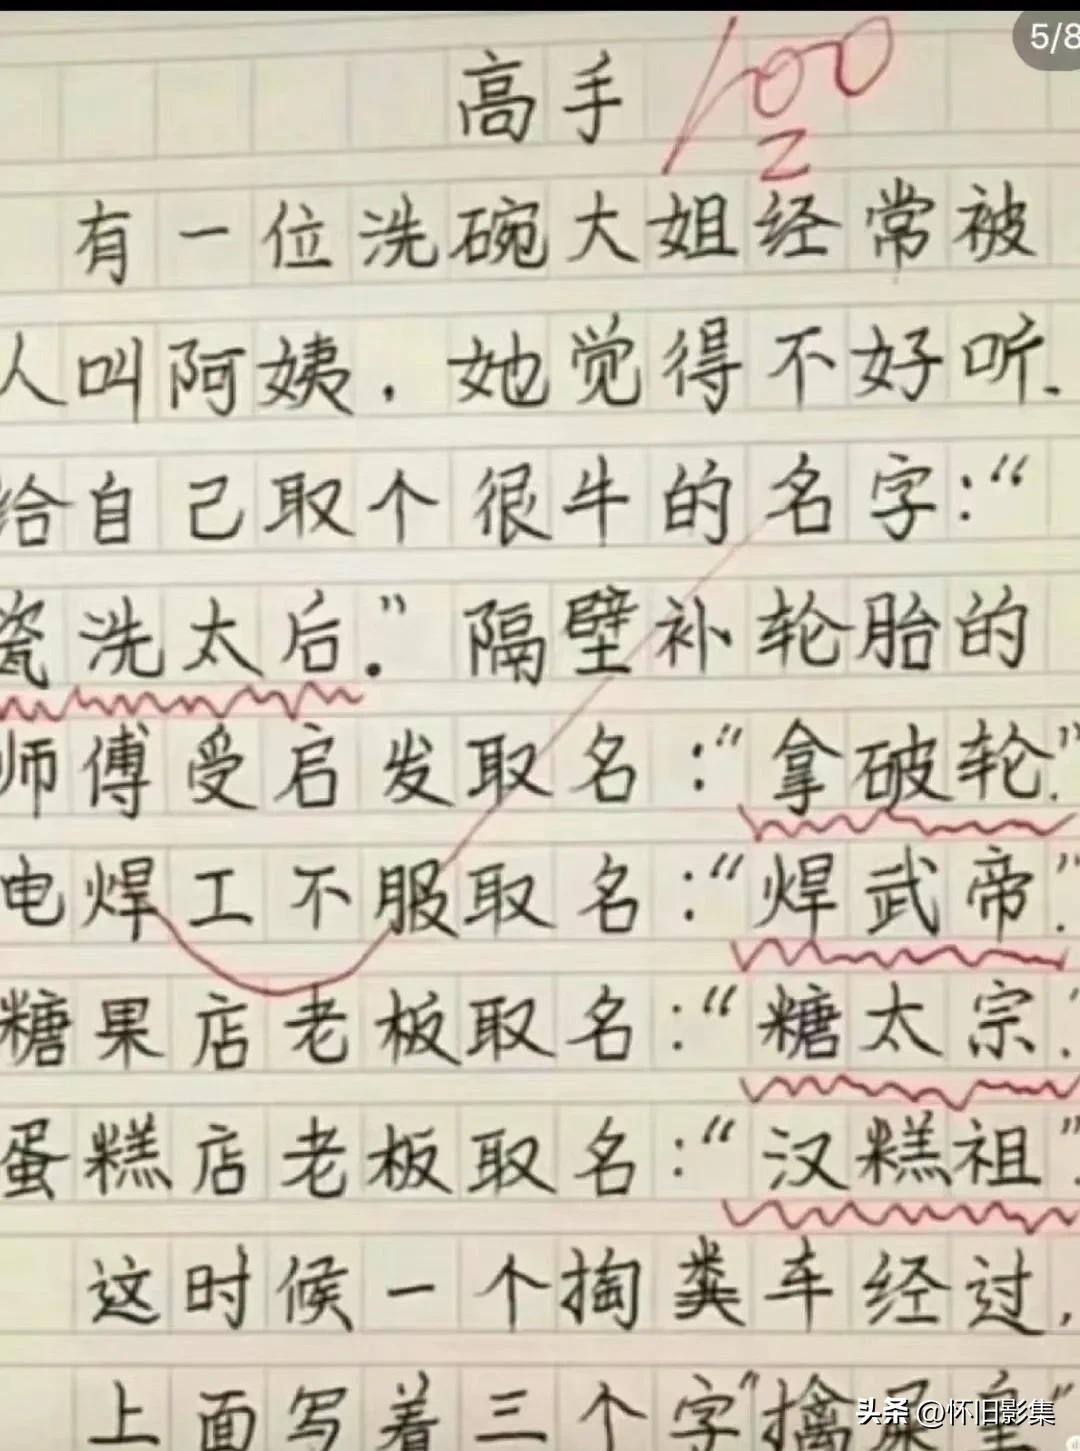 5/8
高手
100
有一位洗碗大姐经常被
人叫阿姨,她觉得不好听.
给自己取个很牛的名字:“
瓷洗太后.”隔壁补轮胎的
师傅受启发取名:“拿破轮.”
电焊工不服取名:“焊武帝.”
糖果店老板取名:“糖太宗.”
蛋糕店老板取名:“汉糕祖”.
这时候一个掏粪车经过,
上面写着三个字“擒屎皇”
头条 @怀旧影集